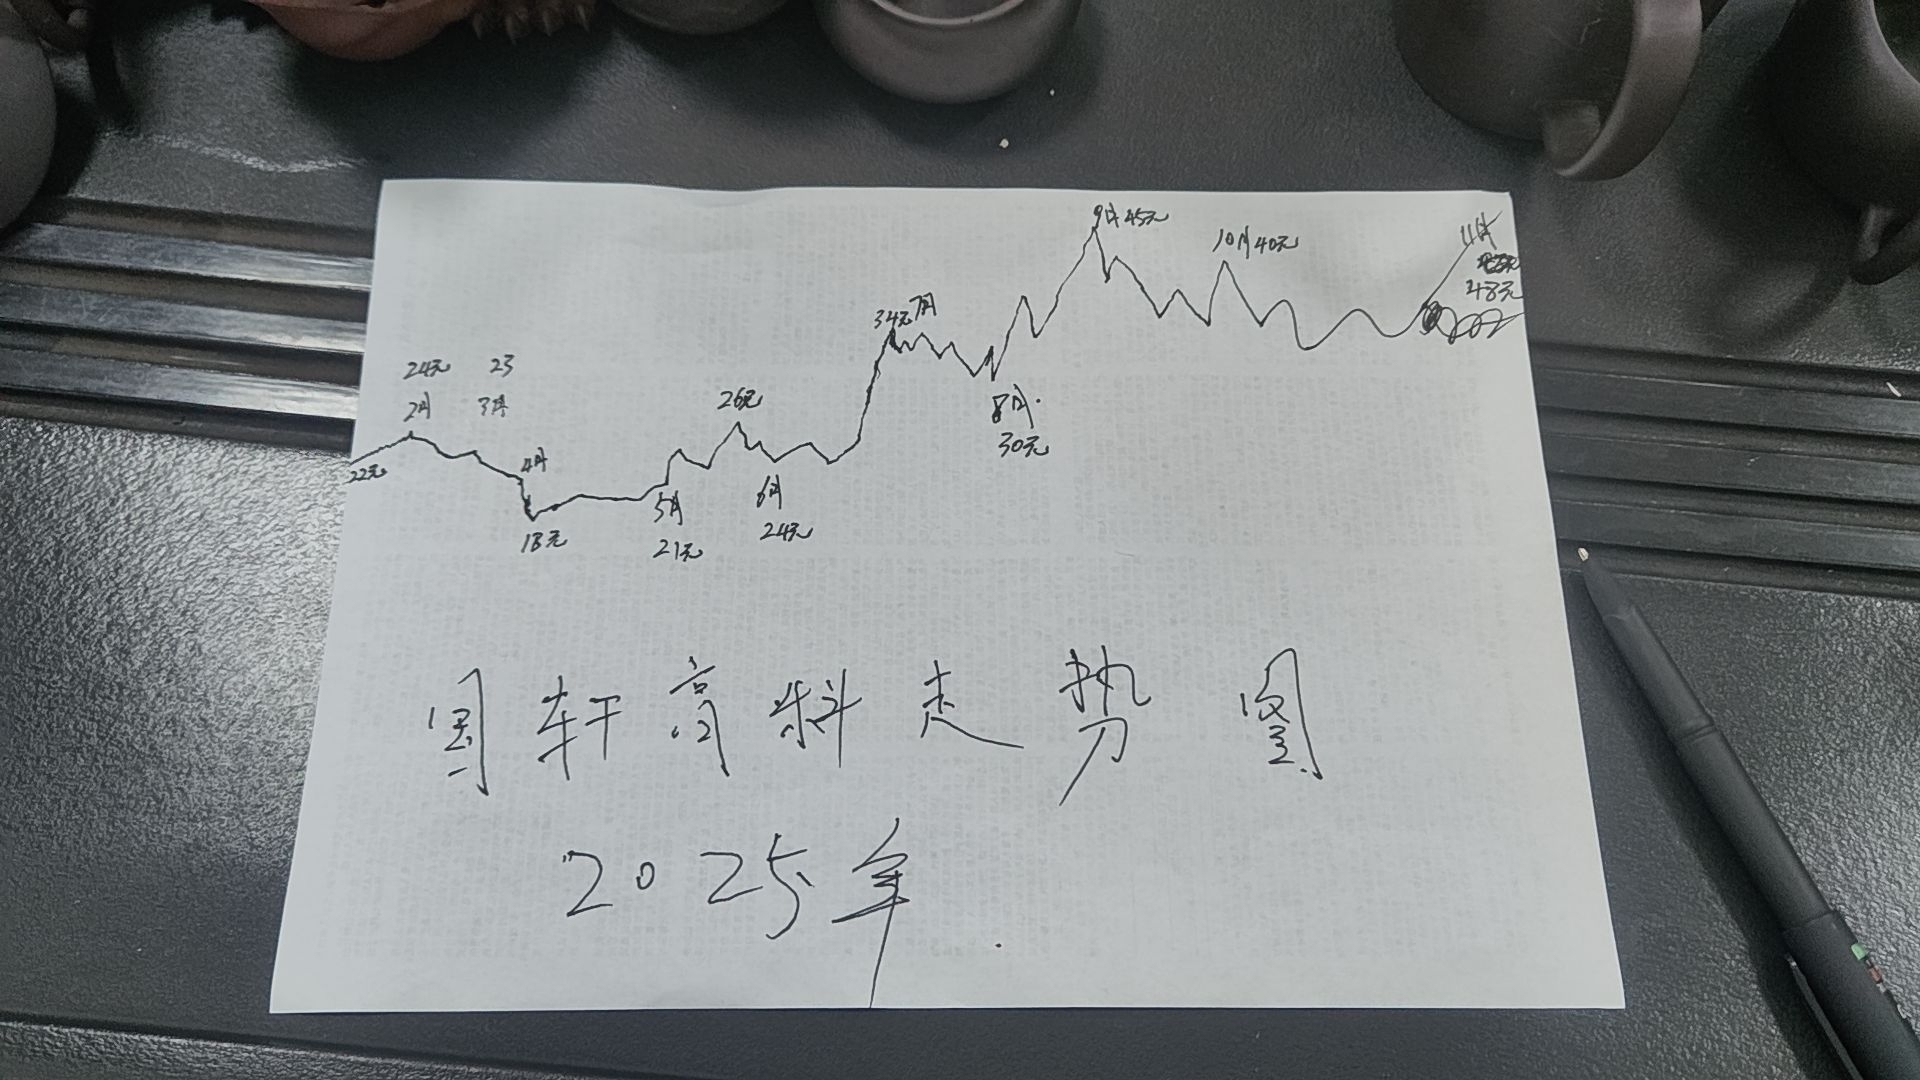 9月 45元
10月 40元
11月
48元
34元 7月
24元 23
2月 3月
26元
8月.
30元
22元
4月
18元
5月
21元
6月
24元
国轩高科走势图
2025年